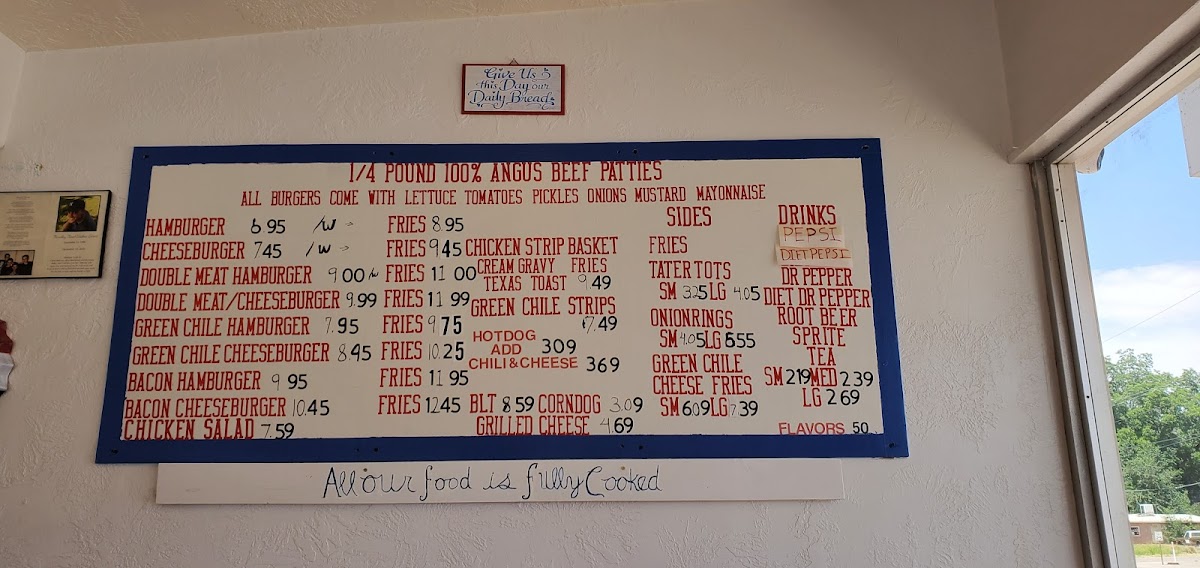 Give Us
this Day our
Daily Bread
1/4 POUND 100% ANGUS BEEF PATTIES
ALL BURGERS COME WITH LETTUCE TOMATOES PICKLES ONIONS MUSTARD MAYONNAISE
HAMBURGER 6 95 /W FRIES 8.95
CHEESEBURGER 7.45 /W FRIES 9.45
DOUBLE MEAT HAMBURGER 9.00 /w FRIES 11 00
DOUBLE MEAT/CHEESEBURGER 9.99 FRIES 11 99
GREEN CHILE HAMBURGER 7.95 FRIES 9 75
GREEN CHILE CHEESEBURGER 8.45 FRIES 10.25
BACON HAMBURGER 9 95 FRIES 11 95
BACON CHEESEBURGER 10.45 FRIES 12.45
CHICKEN SALAD 7.59
CHICKEN STRIP BASKET
CREAM GRAVY FRIES
TEXAS TOAST 9.49
GREEN CHILE STRIPS
7.49
HOTDOG 309
ADD
CHILI & CHEESE 369
BLT 8 59 CORNDOG 3.09
GRILLED CHEESE 4.69
SIDES
FRIES
TATER TOTS
SM 3.25 LG 4.05
ONION RINGS
SM 4.05 LG 555
GREEN CHILE
CHEESE FRIES
SM 609 LG 7.39
DRINKS
PEPSI
DIET PEPSI
DR PEPPER
DIET DR PEPPER
ROOT BEER
SPRITE
TEA
SM 219 MED 2.39
LG 269
FLAVORS 50
All our food is fully Cooked